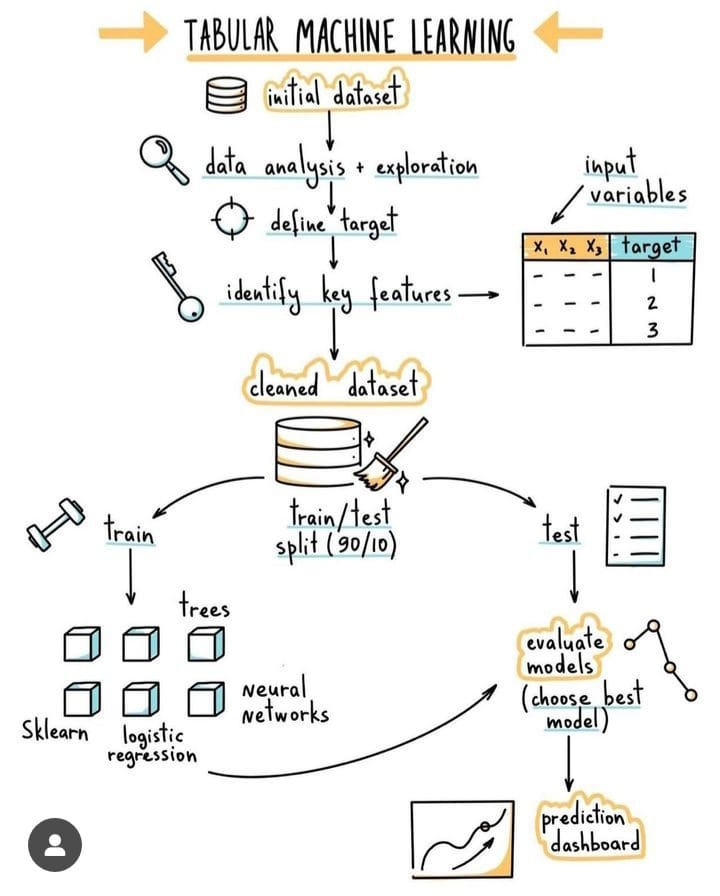 TABULAR MACHINE LEARNING
initial dataset
data analysis + exploration
define target
identify key features
input
variables
X₁ X₂ X₃ target
- - - 1
- - - 2
- - - 3
cleaned dataset
train/test
split (90/10)
train
trees
Neural
Networks
Sklearn
logistic
regression
test
evaluate
models
(choose best
model)
prediction
dashboard